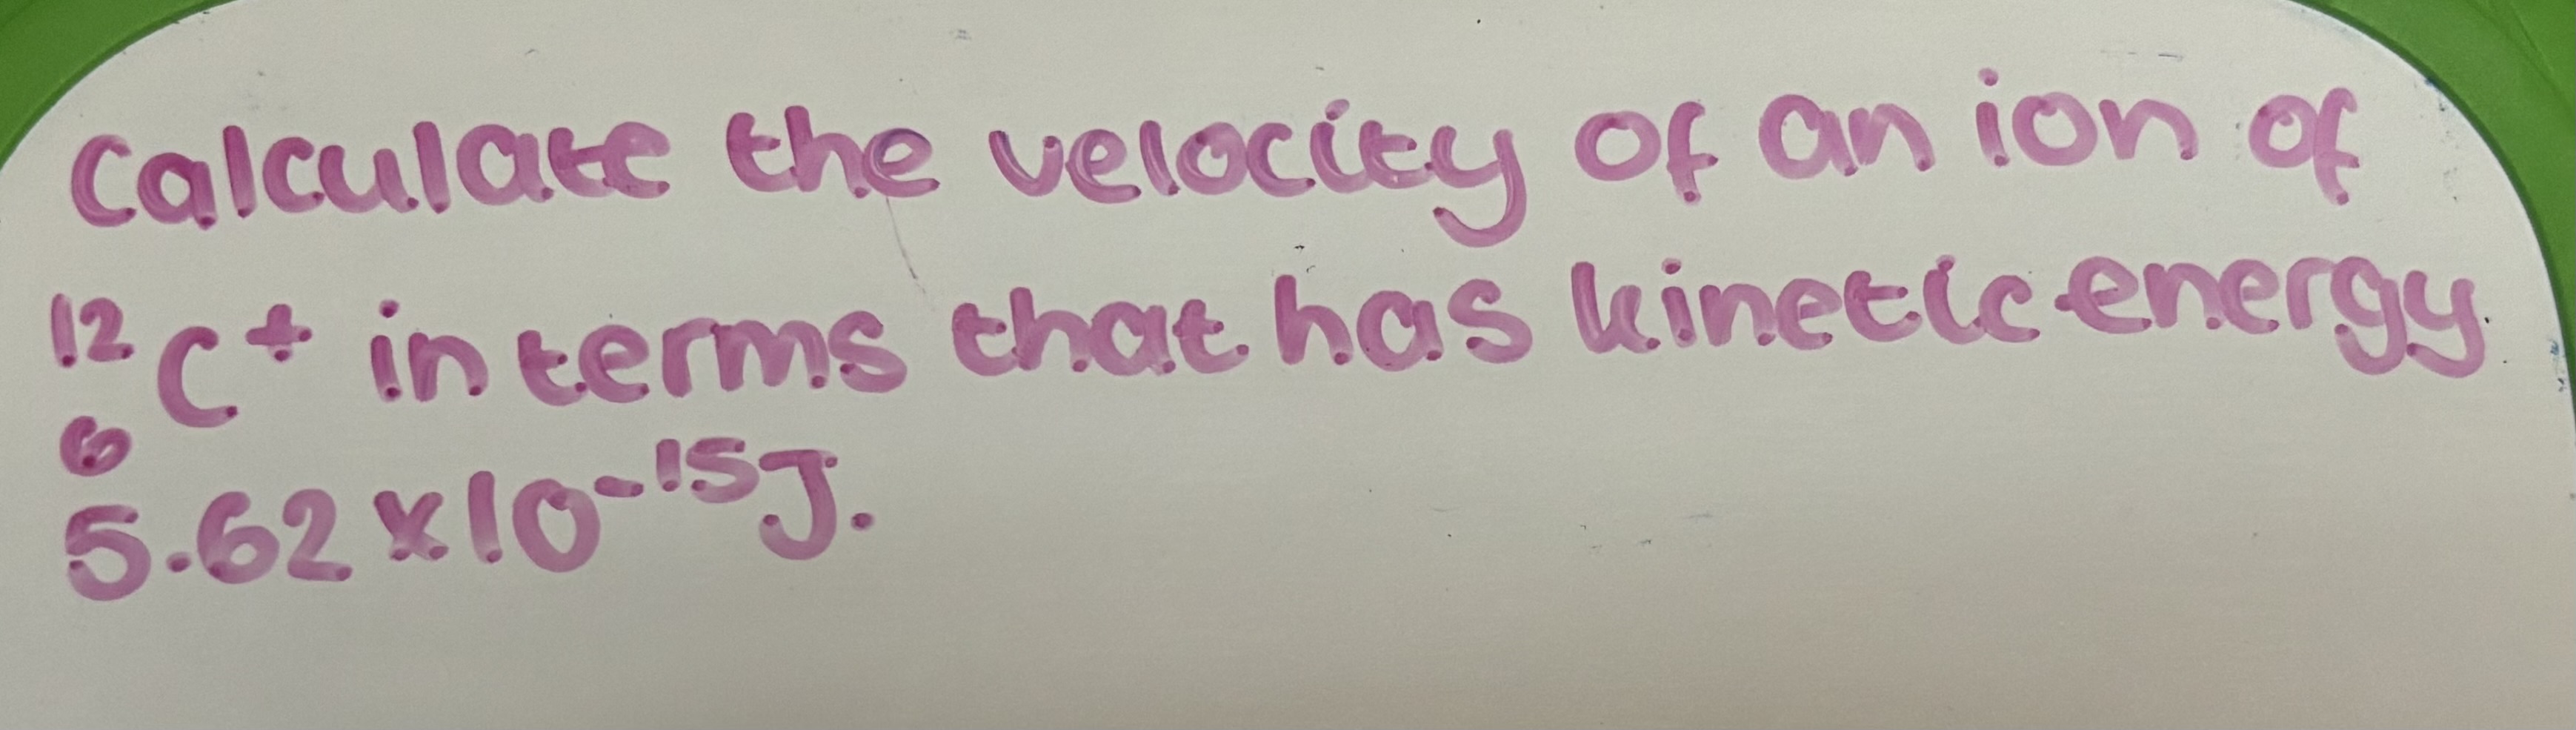 Calculate the velocity of an ion of
¹²₆C⁺ in terms that has kinetic energy
5.62 x 10⁻¹⁵J.